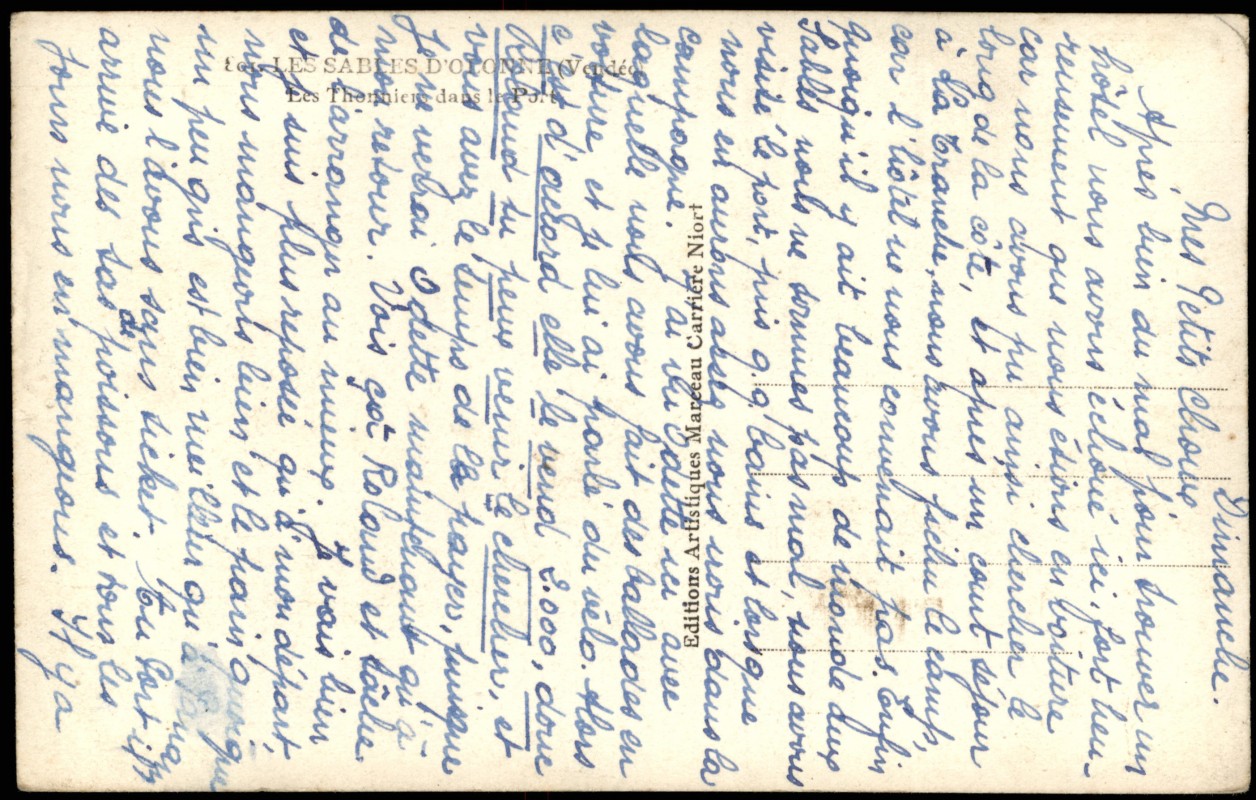 Dimanche.
Mes Petits Choux
Après bien du mal pour trouver un
hôtel nous avons échoué ici, fort heu-
reusement que nous étions en voiture
car nous avons pu ainsi chercher le
long de la côte, et après un court séjour
à La Tranche, nous avons fichu le camp,
car l'hôtel ne nous convenait pas. Enfin
quoiqu'il y ait beaucoup de monde aux
Sables nous ne sommes pas mal, nous avons
visité le port, pris q.q. bains et lorsque
nous en aurons assez nous irons dans la
campagne. J'ai vu Odette ici avec
laquelle nous avons fait des ballades en
voiture et je lui ai parlé du vélo. Alors
c'est d'accord elle le vend 2.000, donc
Roland tu peux venir le chercher, et
vous avez le temps de le payer, puisque
je ne verrai Odette maintenant qu'à
mon retour. Vois çà Roland et tâche
de t'arranger au mieux. Je vais bien
et suis plus reposé qu'à mon départ,
nous mangeons bien et le pain quoique
un peu gris est bien meilleur qu'à
nous l'avons sans ticket. Au Port il
arrive des tas de poissons et tous les
jours nous en mangeons. Il y a
LES SABLES D'OLONNE (Vendée)
Les Thonniers dans le Port
Editions Artistiques Marceau Carrière Niort